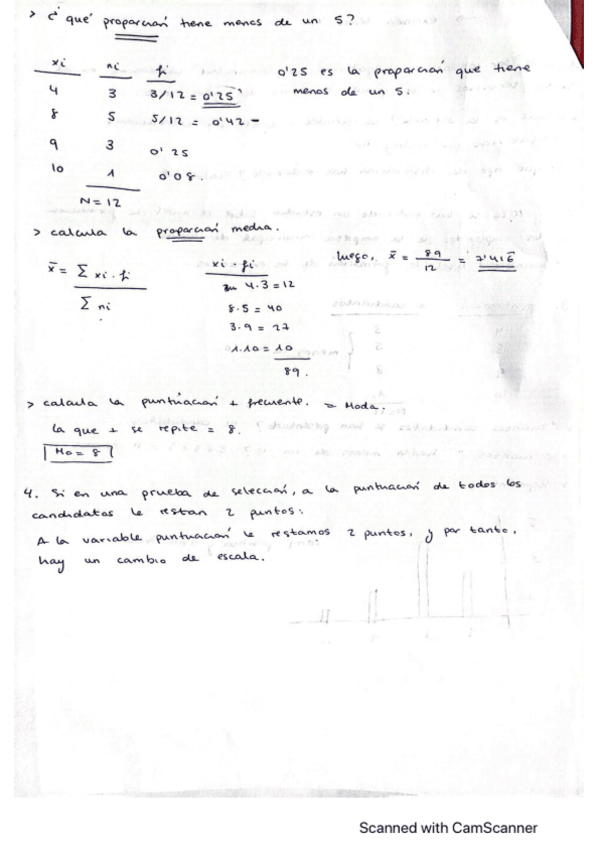 > ¿ qué proporción tiene menos de un 5?
xi ni fi
4 3 3/12 = 0'25
8 5 5/12 = 0'42 -
9 3 0'25
10 1 0'08.
N = 12
0'25 es la proporción que tiene
menos de un 5.
> calcula la proporción media.
x̄ = Σ xi · fi / Σ ni
xi · fi
4·3 = 12
8·5 = 40
3·9 = 27
1·10 = 10
89.
luego, x̄ = 89/12 = 7'416
> calcula la puntuación + frecuente. = Moda.
la que + se repite = 8.
Mo = 8
4. Si en una prueba de selección, a la puntuación de todos los
candidatos le restan 2 puntos:
A la variable puntuación le restamos 2 puntos, y por tanto,
hay un cambio de escala.
Scanned with CamScanner